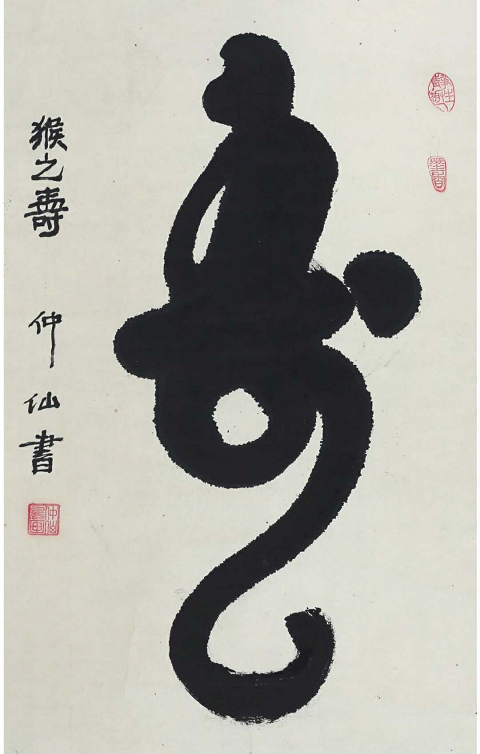 猴之壽
仲仙書